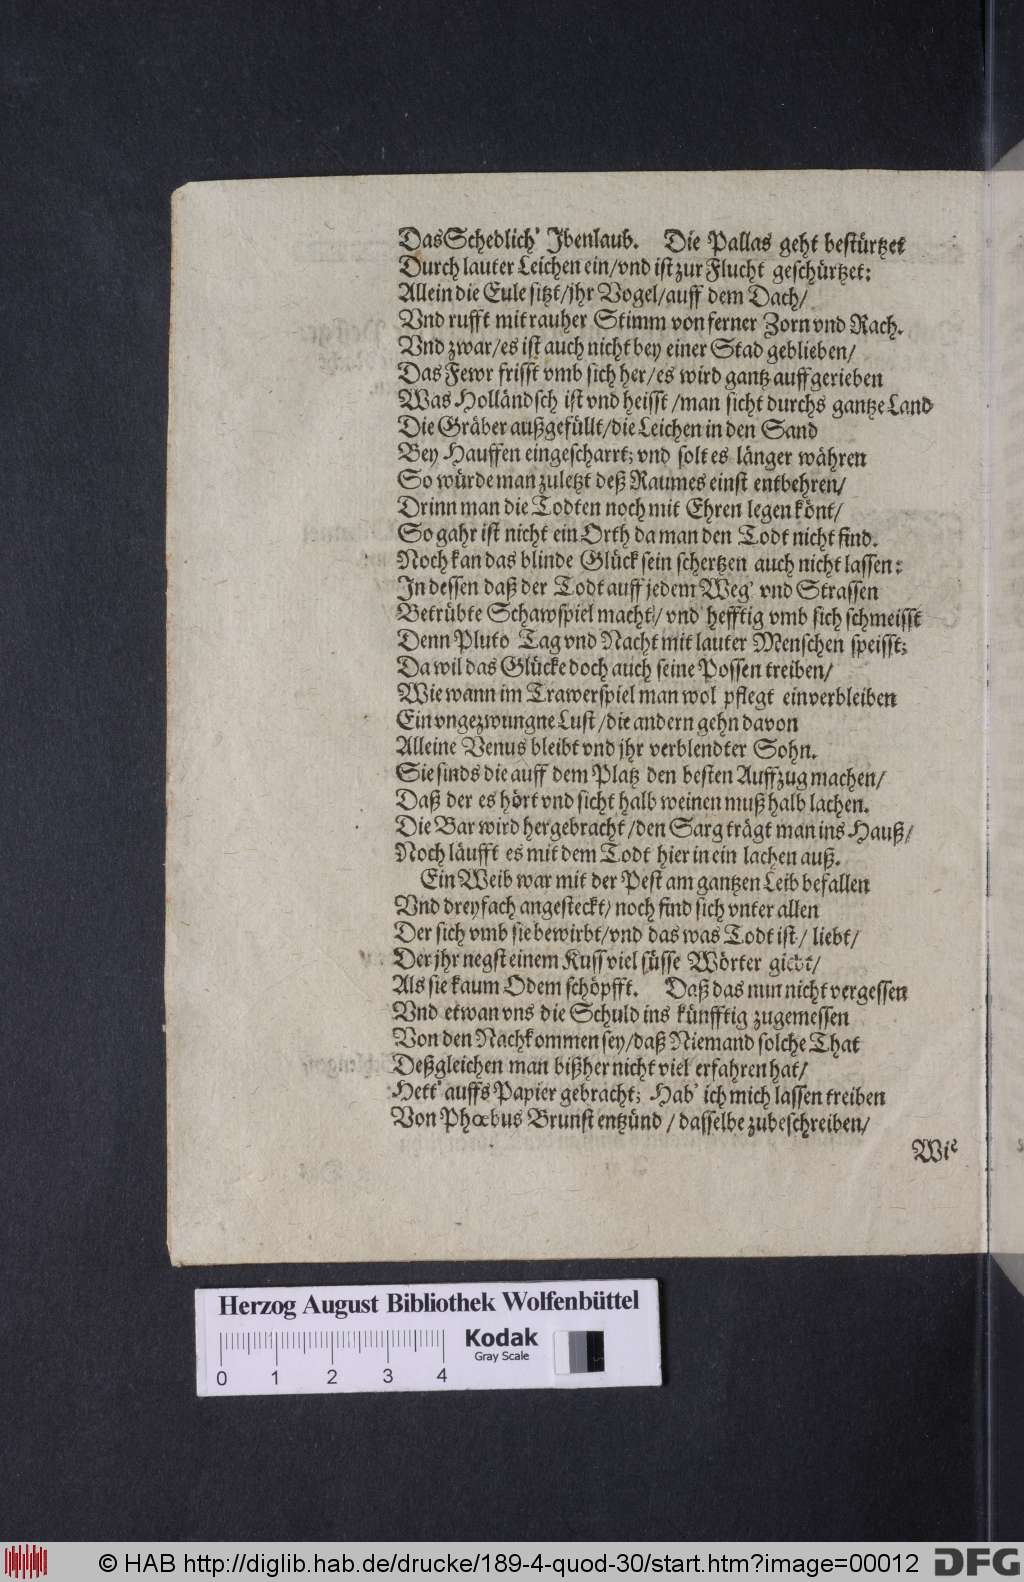 Das Schedlich' Jbenlaub. Die Pallas geht bestürtzet
Durch lauter Leichen ein/vnd ist zur Flucht geschürtzet:
Allein die Eule sitzt/jhr Vogel/auff dem Dach/
Vnd rufft mit rauher Stimm von ferner Zorn vnd Rach.
Vnd zwar/es ist auch nicht bey einer Stad geblieben/
Das Fewr frisst vmb sich her/es wird gantz auffgerieben
Was Holländsch ist vnd heisst/man sicht durchs gantze Land
Die Gräber außgefüllt/die Leichen in den Sand
Bey Hauffen eingescharrt; vnd solt es länger währen
So würde man zuletzt deß Raumes einst entbehren/
Drinn man die Todten noch mit Ehren legen könt/
So gahr ist nicht ein Orth da man den Todt nicht find.
Noch kan das blinde Glück sein schertzen auch nicht lassen:
In dessen daß der Todt auff jedem Weg' vnd Strassen
Betrübte Schawspiel macht/ vnd hefftig vmb sich schmeisst
Denn Pluto Tag vnd Nacht mit lauter Menschen speisst;
Da wil das Glücke doch auch seine Possen treiben/
Wie wann im Trawerspiel man wol pflegt einverbleiben
Ein vngezwungne Lust/die andern gehn davon
Alleine Venus bleibt vnd jhr verblendter Sohn.
Sie sinds die auff dem Platz den besten Auffzug machen/
Daß der es hört vnd sicht halb weinen muß halb lachen.
Die Bar wird hergebracht/den Sarg trägt man ins Hauß/
Noch läufft es mit dem Todt hier in ein lachen auß.
Ein Weib war mit der Pest am gantzen Leib befallen
Vnd dreyfach angesteckt/ noch find sich vnter allen
Der sich vmb sie bewirbt/vnd das was Todt ist/ liebt/
Der jhr negst einem Kuss viel süsse Wörter giebt/
Als sie kaum Odem schöpfft. Daß das nun nicht vergessen
Vnd etwan vns die Schuld ins künfftig zugemessen
Von den Nachkommen sey/daß Niemand solche That
Deßgleichen man bißher nicht viel erfahren hat/
Hett' auffs Papier gebracht; Hab' ich mich lassen treiben
Von Phœbus Brunst entzünd/ dasselbe zubeschreiben/
Wie
Herzog August Bibliothek Wolfenbüttel
Kodak
Gray Scale
0 1 2 3 4
© HAB http://diglib.hab.de/drucke/189-4-quod-30/start.htm?image=00012
DFG